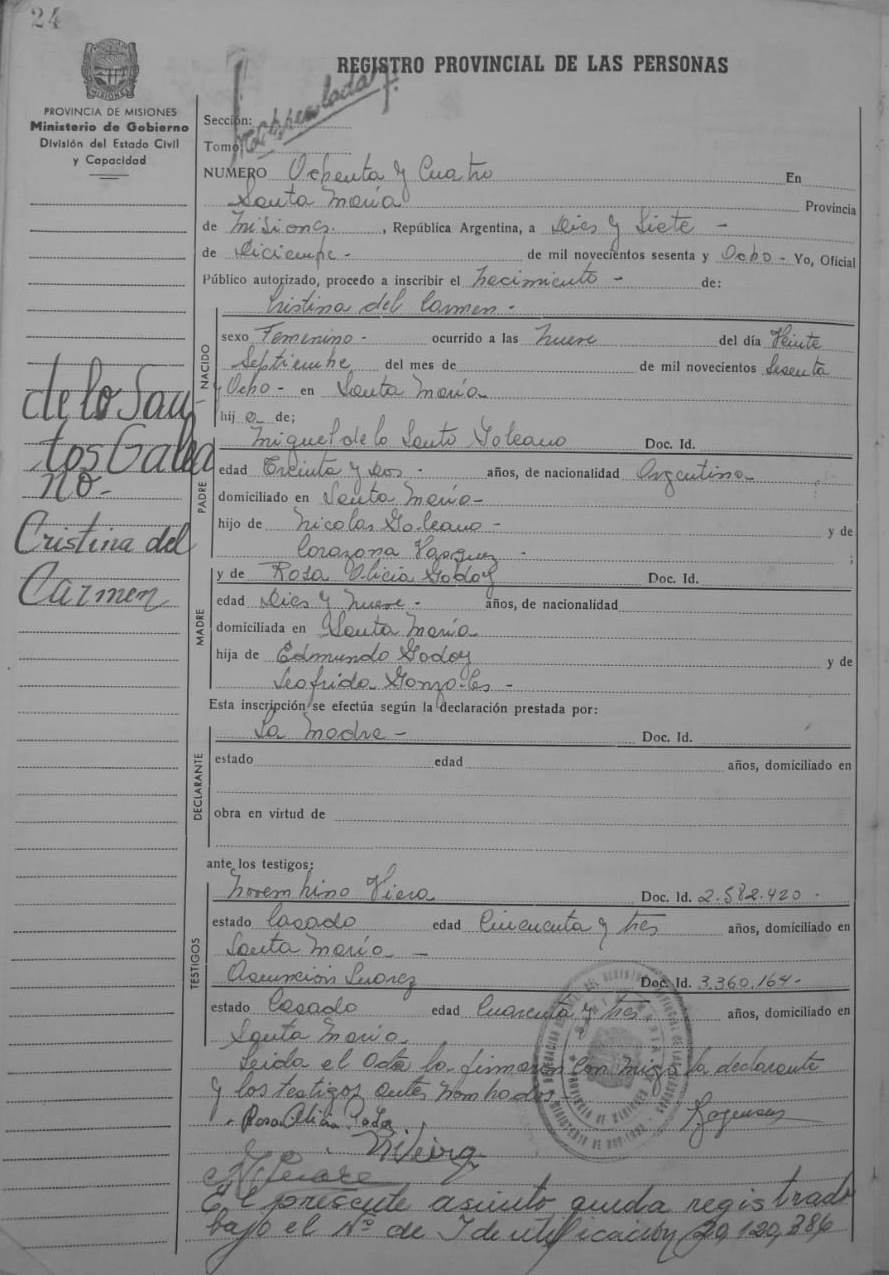 24
REGISTRO PROVINCIAL DE LAS PERSONAS
MISIONES
PROVINCIA DE MISIONES
Ministerio de Gobierno
División del Estado Civil
y Capacidad
de lo San
tos Galea
no-
Cristina del
Carmen
Sección:
Tomo
NUMERO Ochenta y Cuatro En
Santa María Provincia
de Misiones, República Argentina, a Dies y Siete -
de Diciempe - de mil novecientos sesenta y Ocho - Yo, Oficial
Público autorizado, procedo a inscribir el Necimiento - de:
Cristina del Carmen -
NACIDO
sexo Femenino - ocurrido a las Nueve del día Veinte
Septiembe del mes de de mil novecientos Sesenta
y Ocho - en Santa María
hija de;
PADRE
Miguel de lo Santo Galeano Doc. Id.
edad Treinta y dos - años, de nacionalidad Argentina
domiciliado en Santa María -
hijo de Nicolas Galeano - y de
Corazona Vasquez -
MADRE
y de Rosa Alicia Godoy Doc. Id.
edad Dies y Nueve - años, de nacionalidad
domiciliada en Santa María
hija de Edmundo Godoy y de
Leofrida Gonzales -
Esta inscripción se efectúa según la declaración prestada por:
DECLARANTE
La Madre - Doc. Id.
estado edad años, domiciliado en
obra en virtud de
ante los testigos:
TESTIGOS
Novembino Viera Doc. Id. 2.582.420 -
estado Casado edad Cincuenta y tres años, domiciliado en
Santa María -
Asunción Suarez Doc. Id. 3.360.164 -
estado Casado edad Cuarenta y Tres años, domiciliado en
Santa María
Leida el Acta la firmaron con migo la declarante
y los testigos antes nombados -
Rosa Alicia Godoy
NVieira
El presente asiento queda registrado
bajo el Nº de Identificación 20,120,386